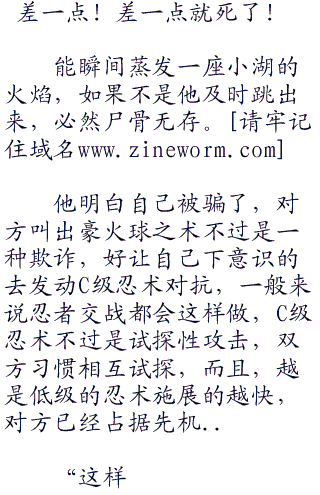 差一点！差一点就死了！
能瞬间蒸发一座小湖的
火焰，如果不是他及时跳出
来，必然尸骨无存。[请牢记
住域名www.zineworm.com]
他明白自己被骗了，对
方叫出豪火球之术不过是一
种欺诈，好让自己下意识的
去发动C级忍术对抗，一般来
说忍者交战都会这样做，C级
忍术不过是试探性攻击，双
方习惯相互试探，而且，越
是低级的忍术施展的越快，
对方已经占据先机..
“这样